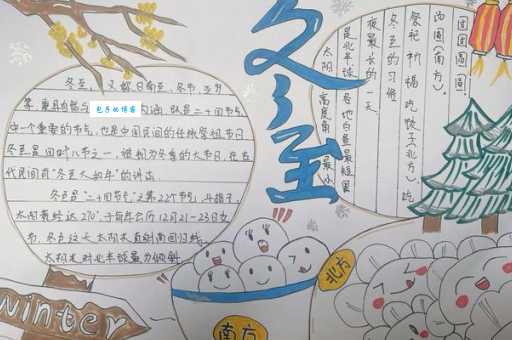 冬至
冬至，又称日南至、冬节、亚岁
等，兼具自然与
包子的博客
内涵，既是二十四节气
中一个重要的节气，也是中国民间的传统祭祖节日
冬至是四时八节之一，被视为冬季的大节日，在古
代民间有“冬至大如年”的讲法。
冬至是“二十四节气”之第22个节气。斗指子，
太阳黄经达270°，于每年公历12月21-23日交
节。冬至这天太阳光直射南回归线，
太阳光对北半球最为倾斜
太阳高度角最小
是北半球各地白昼最短黑
夜最长的一天
冬至的习俗
祭祀祈福吃饺子(北方)、吃
汤圆(南方)。
团团圆圆
winter
南方
北方